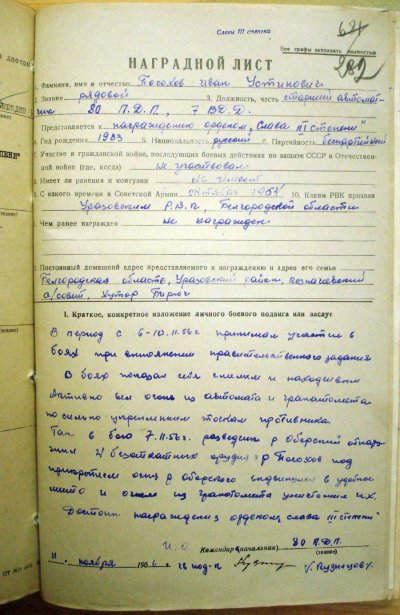 Славы III степени
Все графы заполнять полностью
НАГРАДНОЙ ЛИСТ
1. Фамилия, имя и отчество Посохов Иван Устинович
2. Звание рядовой 3. Должность, часть старший автомат-
чик 80 П.Д.П., 7 ВДД.
Представляется к награждению орденом „Слава III степени"
4. Год рождения 1933 5. Национальность русский 6. Партийность беспартийный
7. Участие в гражданской войне, последующих боевых действиях по защите СССР и Отечествен-
ной войне (где, когда) не участвовал
8. Имеет ли ранения и контузии не имеет
9. С какого времени в Советской Армии октября 1954 10. Каким РВК призван
Уразовским Р.В.К., Белгородской области
Чем ранее награжден не награжден
Постоянный домашний адрес представляемого к награждению и адрес его семьи
Белгородская область, Уразовский район,
с/совет, Хутор Бирюч
I. Краткое, конкретное изложение личного боевого подвига или заслуг
В период с 6-10.11.56г. принимал участие в
боях при выполнении правительственного задания
В боях показал себя смелым и находчивым
Активно вел огонь из автомата и гранатомета
по сильно укрепленным точкам противника.
Так в бою 7.11.56г. разведчик р Оберский обнару-
жил 4 безоткатных орудия р Посохов под
прикрытием огня р Оберского выдвинулся в удобное
место и огнем из гранатомета уничтожил их.
Достоин награждения орденом слава III степени
И.О. Командир (начальник) 80 П.Д.П.
(звание)
11. ноября 1956 г. п/п-к Кузнецов